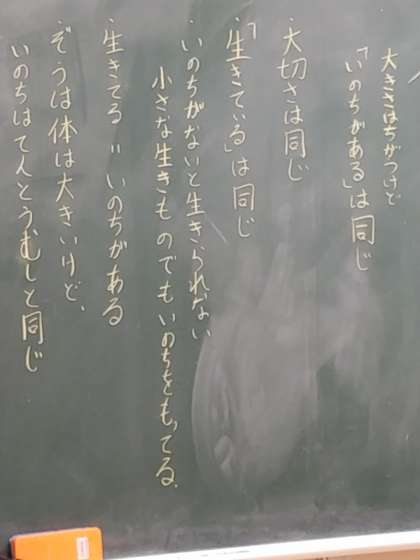 大きさはちがうけど
「いのちがある」は同じ
・大切さは同じ
・「生きている」は同じ
・いのちがないと生きられない
小さな生きものでもいのちをもってる。
・生きてる＝いのちがある
・ぞうは体は大きいけど、
いのちはてんとうむしと同じ